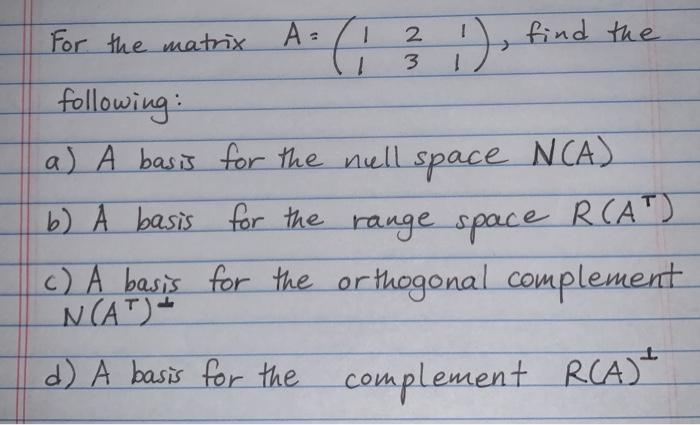 For the matrix A = ( 1 2 1 ), find the
( 1 3 1 )
following:
a) A basis for the null space N(A)
b) A basis for the range space R(Aᵀ)
c) A basis for the orthogonal complement
N(Aᵀ)⊥
d) A basis for the complement R(A)⊥